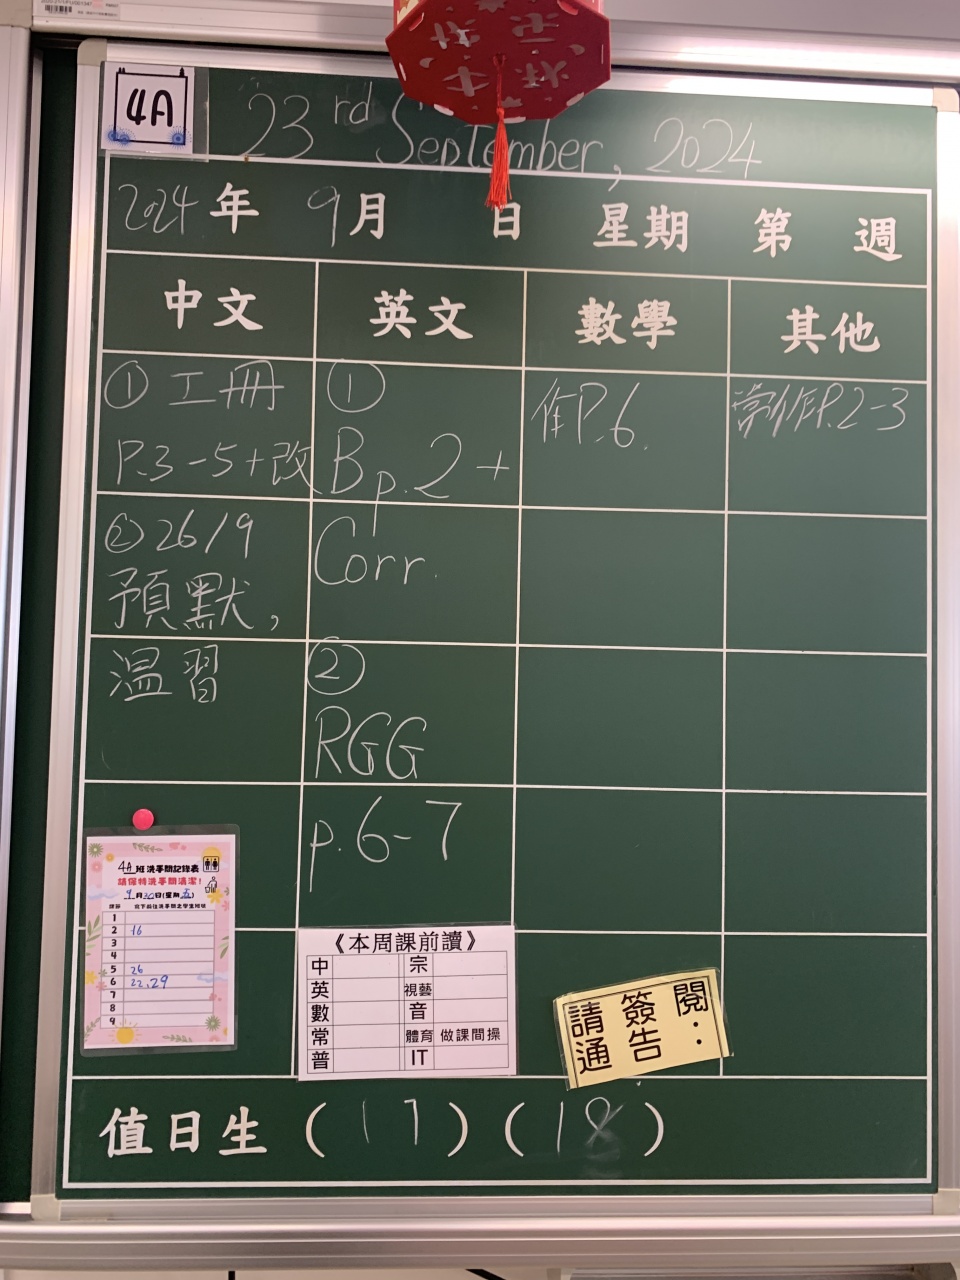 4A
23rd September, 2024
2024年 9月 日 星期 第 週
中文
① 工冊
P.3-5+改
② 26/9
預默,
温習
英文
①
B p.2 +
Corr.
②
RGG
p.6-7
數學
P.6
其他
常作P.2-3
4A班洗手間記錄表
請保持洗手間清潔!
月30日(星期五)
1
2 16
3
4
5 26
6 22,29
7
8
9
《本周課前讀》
中 宗
英 視藝
數 音
常 體育 做課間操
普 IT
請簽閱
通告:
值日生 (17) (18)